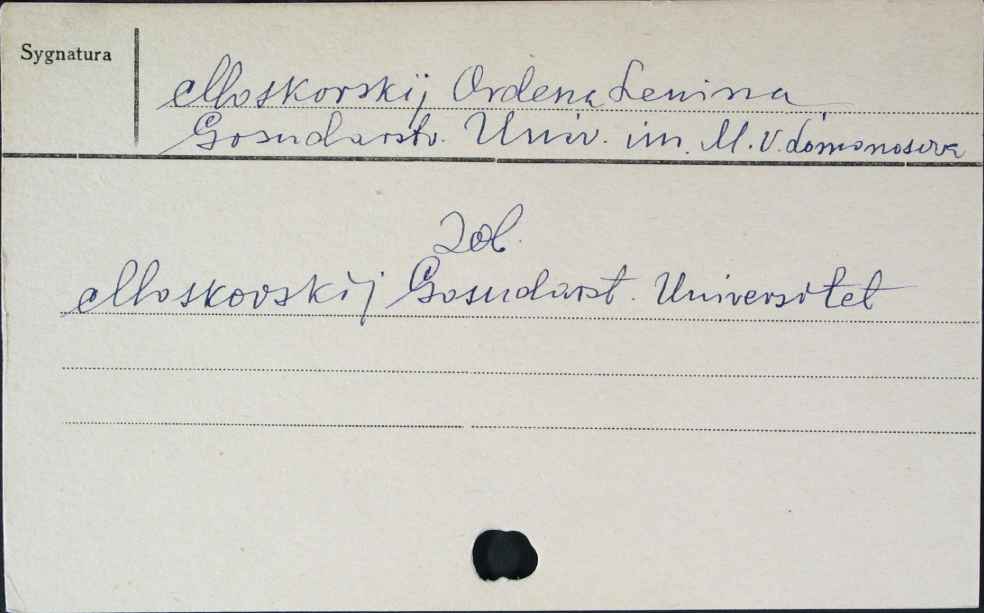 Sygnatura
Moskovskij Ordena Lenina
Gosudarstv. Univ. im. M. V. Lomonosova
zob.
Moskovskij Gosudarst. Universitet